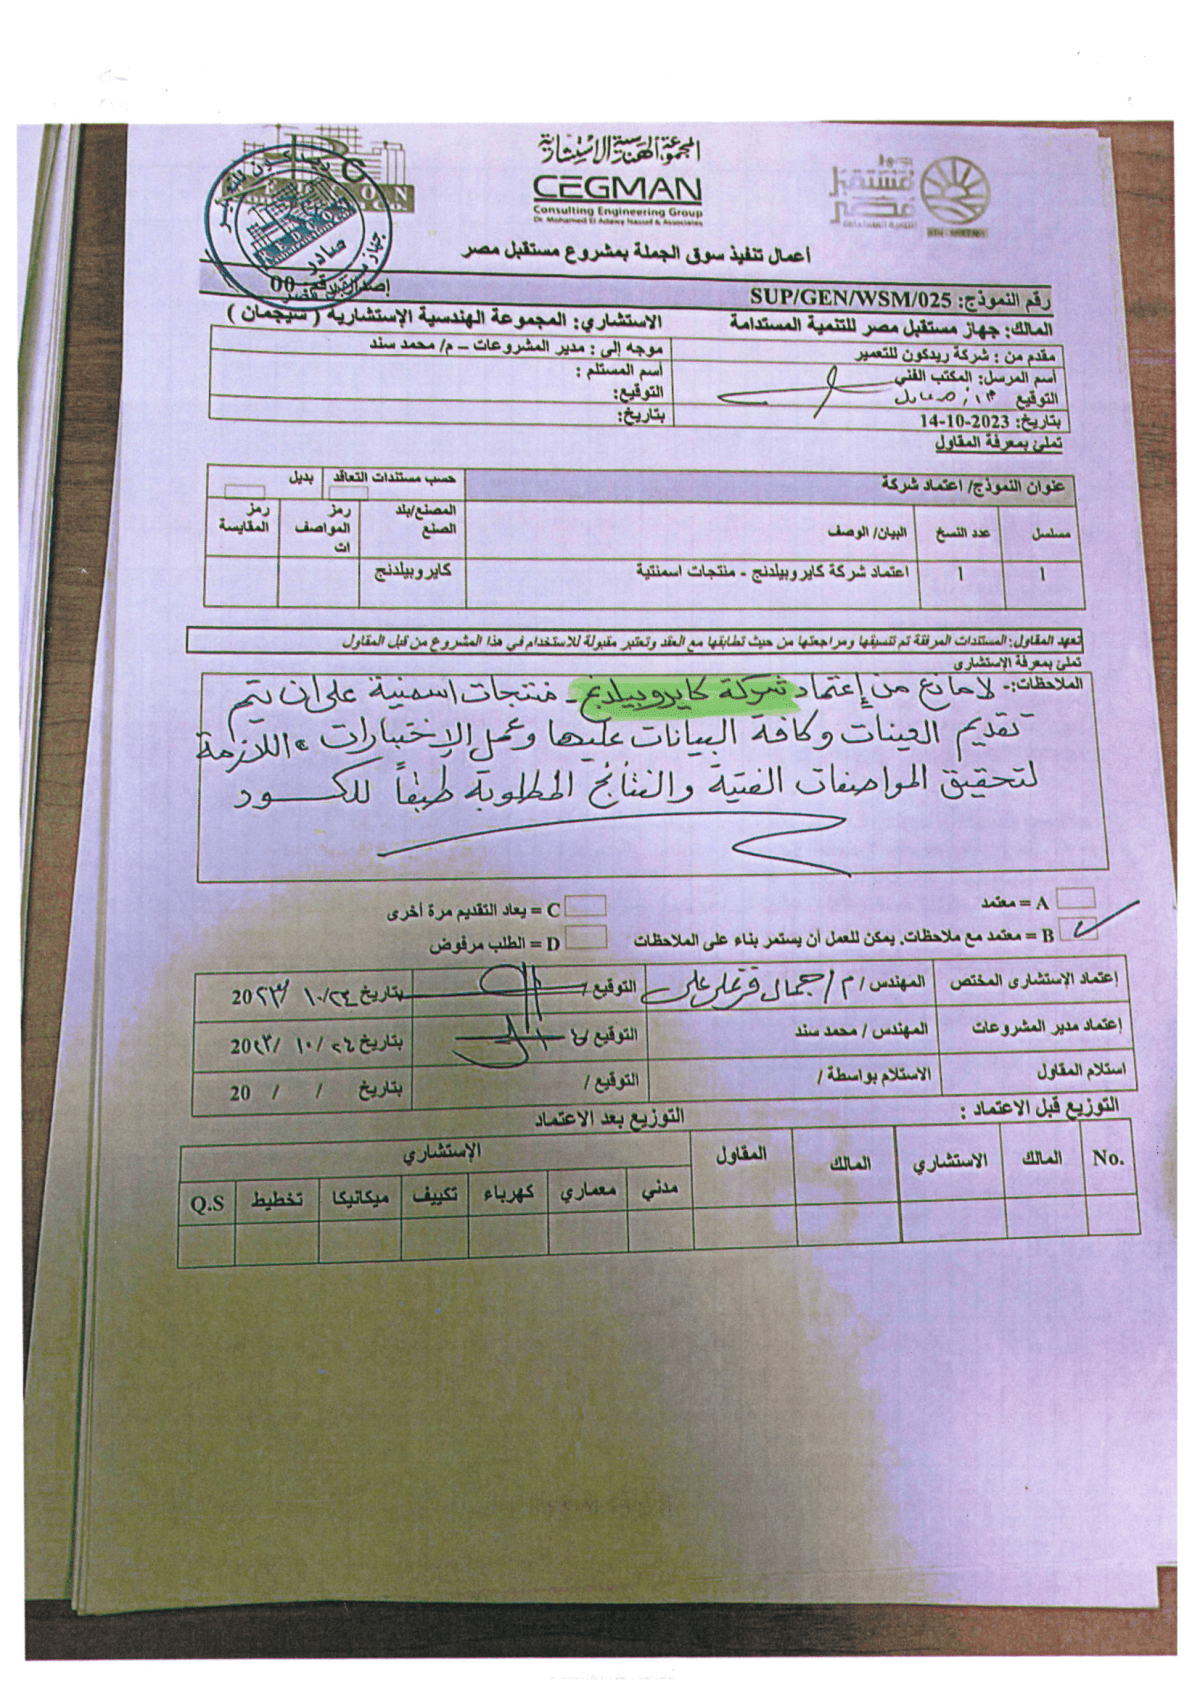 المجموعة الهندسية الاستشارية
CEGMAN
Consulting Engineering Group
Dr. Mohamed El Adawy Nassef & Associates
جهاز
مستقبل
مصر
للتنمية المستدامة
صادر
أعمال تنفيذ سوق الجملة بمشروع مستقبل مصر
رقم النموذج: SUP/GEN/WSM/025 إصدار رقم: 00
المالك: جهاز مستقبل مصر للتنمية المستدامة الاستشاري: المجموعة الهندسية الإستشارية ( سيجمان )
مقدم من : شركة ريدكون للتعمير موجه إلى : مدير المشروعات – م/ محمد سند
أسم المرسل: المكتب الفني أسم المستلم :
التوقيع التوقيع:
بتاريخ: 14-10-2023 بتاريخ:
تملئ بمعرفة المقاول
عنوان النموذج/ اعتماد شركة حسب مستندات التعاقد بديل
مسلسل عدد النسخ البيان/ الوصف المصنع/بلد الصنع رمز المواصفات رمز المقايسة
1 1 اعتماد شركة كايروبيلدنج - منتجات اسمنتية كايروبيلدنج
تعهد المقاول: المستندات المرفقة تم تنسيقها ومراجعتها من حيث تطابقها مع العقد وتعتبر مقبولة للاستخدام في هذا المشروع من قبل المقاول
تملئ بمعرفة الإستشارى
الملاحظات:- لا مانع من إعتماد شركة كايروبيلدنج - منتجات اسمنية على ان يتم
تقديم العينات وكافة البيانات عليها وعمل الإختبارات اللازمة
لتحقيق المواصفات الفنية والنتائج المطلوبة طبقاً للكود
A = معتمد C = يعاد التقديم مرة أخرى
B = معتمد مع ملاحظات. يمكن للعمل أن يستمر بناء على الملاحظات D = الطلب مرفوض
إعتماد الإستشارى المختص المهندس / م/ جمال قرعلى على التوقيع / بتاريخ ٢٤/ ١٠/ 20٢٣
إعتماد مدير المشروعات المهندس / محمد سند التوقيع / بتاريخ ٢٤/ ١٠/ 20٢٣
استلام المقاول الاستلام بواسطة / التوقيع / بتاريخ / / 20
التوزيع قبل الاعتماد : التوزيع بعد الاعتماد
No. المالك الاستشاري المالك المقاول الإستشاري
مدني معماري كهرباء تكييف ميكانيكا تخطيط Q.S